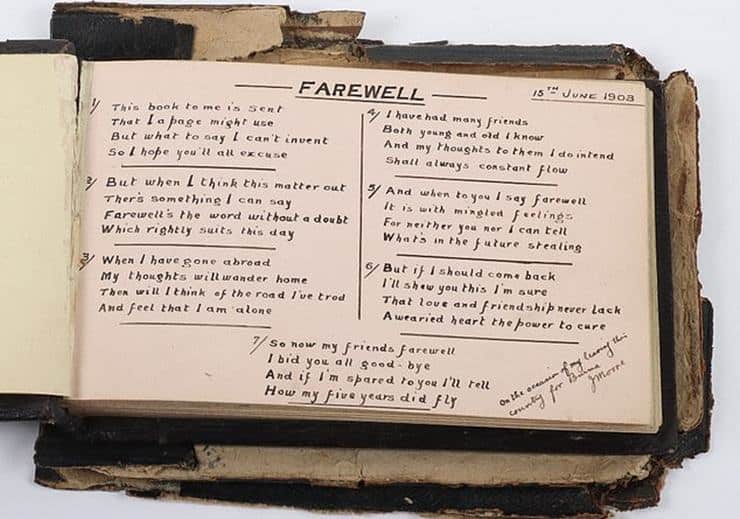 FAREWELL
15TH JUNE 1903
1/ This book to me is sent
That I a page might use
But what to say I can't invent
So I hope you'll all excuse
2/ But when I think this matter out
Ther's something I can say
Farewell's the word without a doubt
Which rightly suits this day
3/ When I have gone abroad
My thoughts will wander home
Then will I think of the road I've trod
And feel that I am alone
4/ I have had many friends
Both young and old I know
And my thoughts to them I do intend
Shall always constant flow
5/ And when to you I say farewell
It is with mingled feelings
For neither you nor I can tell
What's in the future stealing
6/ But if I should come back
I'll shew you this I'm sure
That love and friendship never lack
A wearied heart the power to cure
7/ So now my friends farewell
I bid you all good-bye
And if I'm spared to you I'll tell
How my five years did fly
On the occasion of my leaving this
country for Burma
J Moore